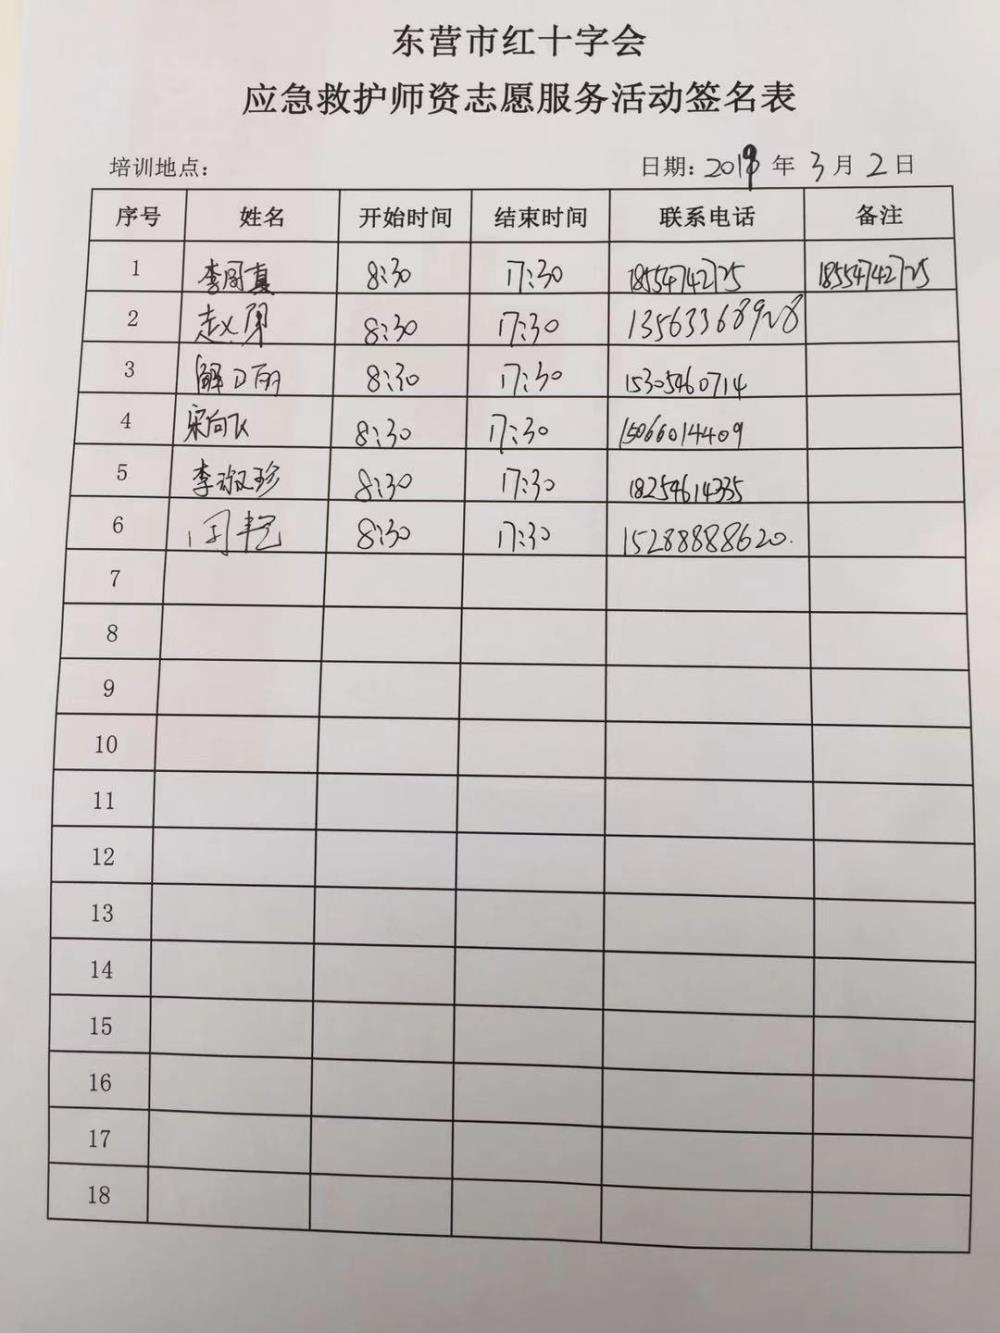 东营市红十字会
应急救护师资志愿服务活动签名表
培训地点： 日期：2019 年 3 月 2 日
序号 姓名 开始时间 结束时间 联系电话 备注
1 李国真 8:30 17:30 18554742725 18554742725
2 赵义勇 8:30 17:30 13563368928
3 解卫丽 8:30 17:30 15305460714
4 宋向飞 8:30 17:30 15066014409
5 李淑珍 8:30 17:30 18254614335
6 闫艳 8:30 17:30 15288888620.
7
8
9
10
11
12
13
14
15
16
17
18